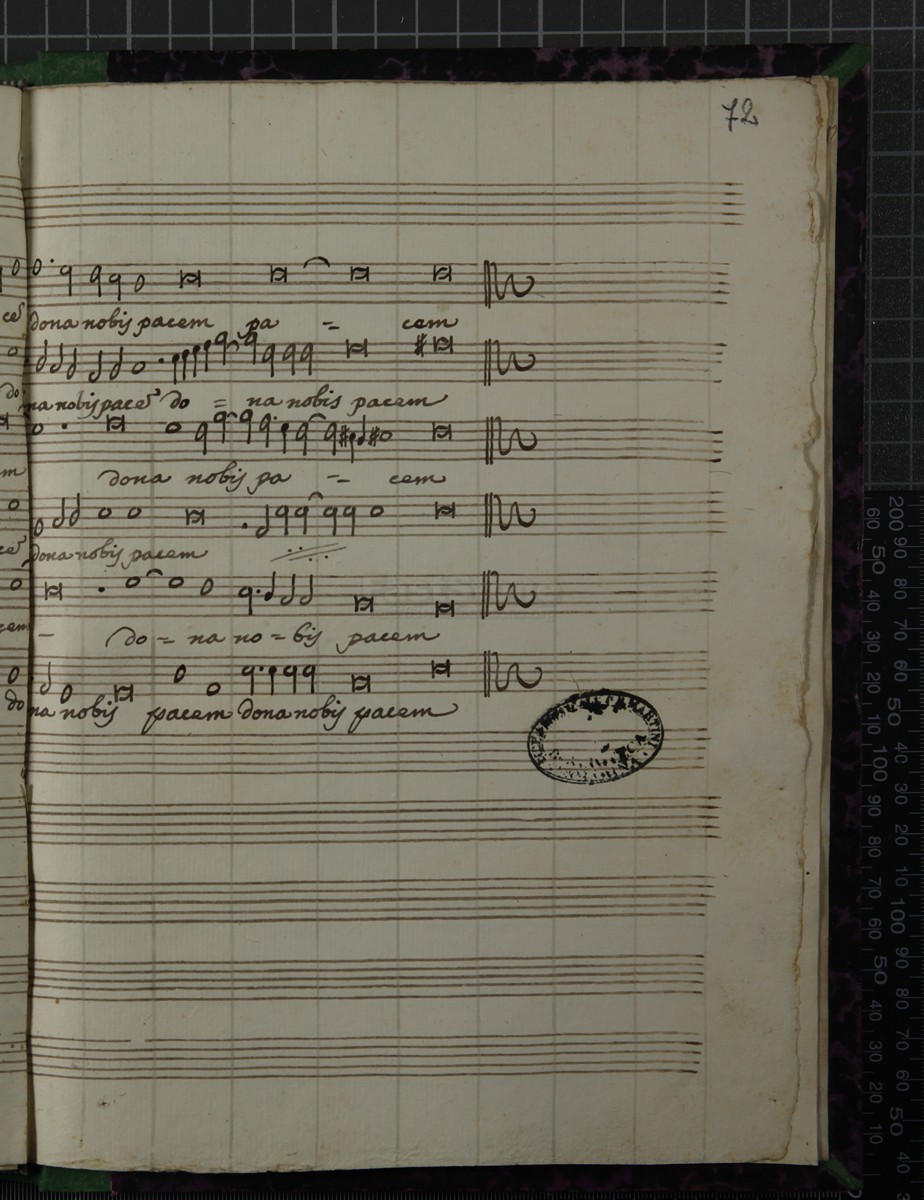 72
dona nobis pacem pa = cem
na nobis pace do = na nobis pacem
dona nobis pa = cem
dona nobis pacem
cem do = na no = bis pacem
do na nobis pacem dona nobis pacem
MARTINI
200 90 80 70 60 50 40 30 20 10 100 90 80 70 60 50 40
60 50 40 30 20 10 100 90 80 70 60 50 40 30 20 10